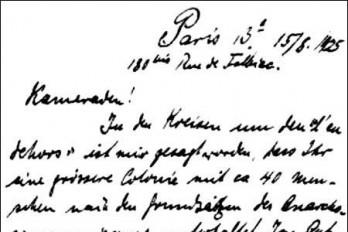 Paris 13e 15/8. 1925
180bis Rue de Tolbiac.
Kameraden!
In den Kreisen um den "L'en
dehors" ist mir gesagt worden, dass Ihr
eine grössere Colonie mit ca 40 Men-
schen nach den Grundsätzen des Anarchis-